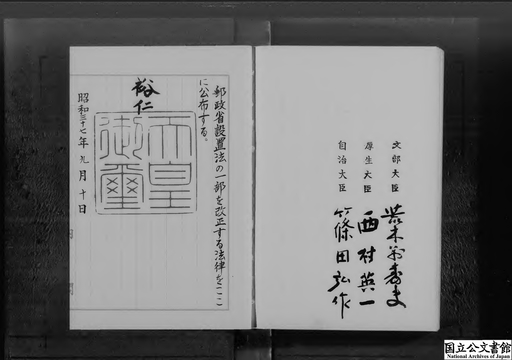 郵政省設置法の一部を改正する法律をここ
に公布する。
裕仁
天皇御璽
昭和三十七年九月十日
文部大臣 荒木萬壽夫
厚生大臣 西村英一
自治大臣 篠田弘作
国立公文書館
National Archives of Japan